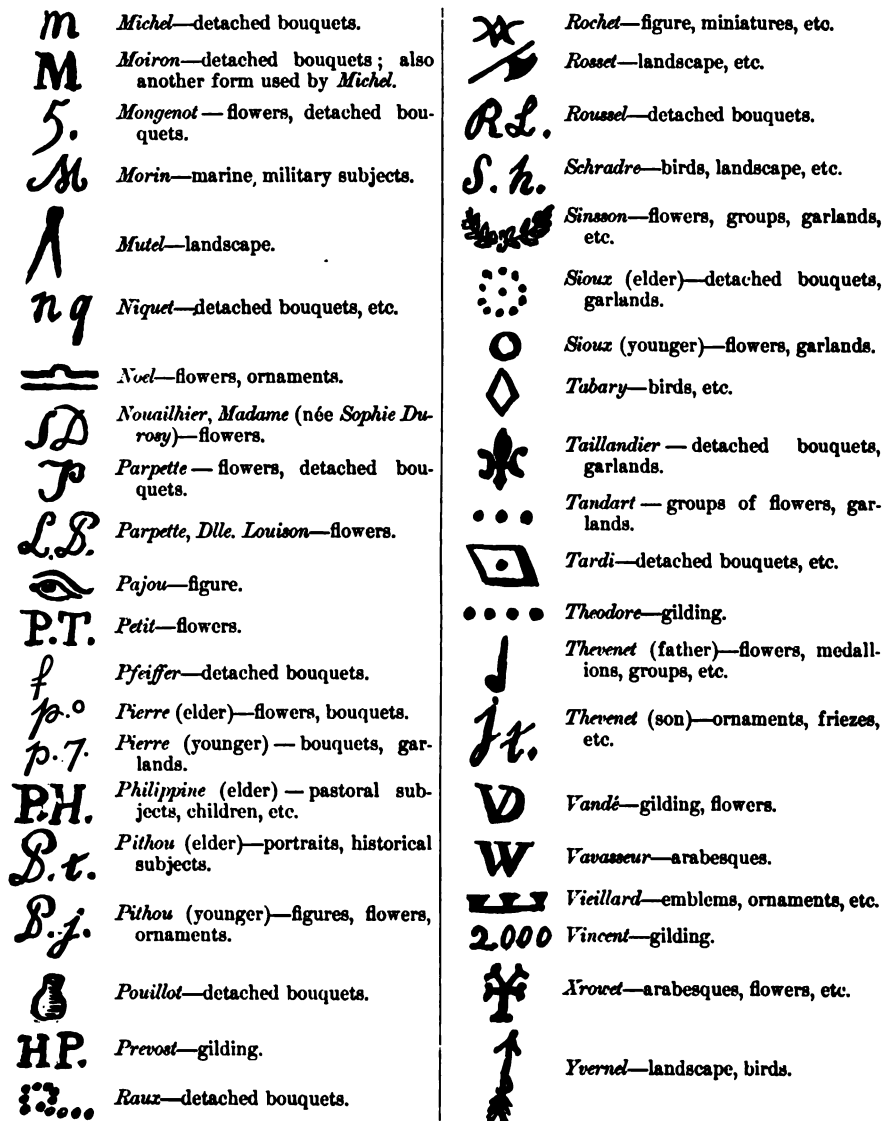 m Michel—detached bouquets.
M Moiron—detached bouquets; also
another form used by Michel.
5. Mongenot — flowers, detached bou-
quets.
M Morin—marine, military subjects.
Mutel—landscape.
n q Niquet—detached bouquets, etc.
Noel—flowers, ornaments.
SD Nouailhier, Madame (née Sophie Du-
rosy)—flowers.
P Parpette — flowers, detached bou-
quets.
L.P. Parpette, Dlle. Louison—flowers.
Pajou—figure.
P.T. Petit—flowers.
f Pfeiffer—detached bouquets.
p.o Pierre (elder)—flowers, bouquets.
p.7. Pierre (younger) — bouquets, gar-
lands.
P.H. Philippine (elder) — pastoral sub-
jects, children, etc.
P.t. Pithou (elder)—portraits, historical
subjects.
P.j. Pithou (younger)—figures, flowers,
ornaments.
Pouillot—detached bouquets.
HP. Prevost—gilding.
Raux—detached bouquets.
Rochet—figure, miniatures, etc.
Rosset—landscape, etc.
RL. Roussel—detached bouquets.
S.h. Schradre—birds, landscape, etc.
Sinsson—flowers, groups, garlands,
etc.
Sioux (elder)—detached bouquets,
garlands.
Sioux (younger)—flowers, garlands.
Tabary—birds, etc.
Taillandier — detached bouquets,
garlands.
Tandart — groups of flowers, gar-
lands.
Tardi—detached bouquets, etc.
Theodore—gilding.
Thevenet (father)—flowers, medall-
ions, groups, etc.
jt. Thevenet (son)—ornaments, friezes,
etc.
VD Vandé—gilding, flowers.
W Vavasseur—arabesques.
Vieillard—emblems, ornaments, etc.
2000 Vincent—gilding.
Xrowet—arabesques, flowers, etc.
Yvernel—landscape, birds.